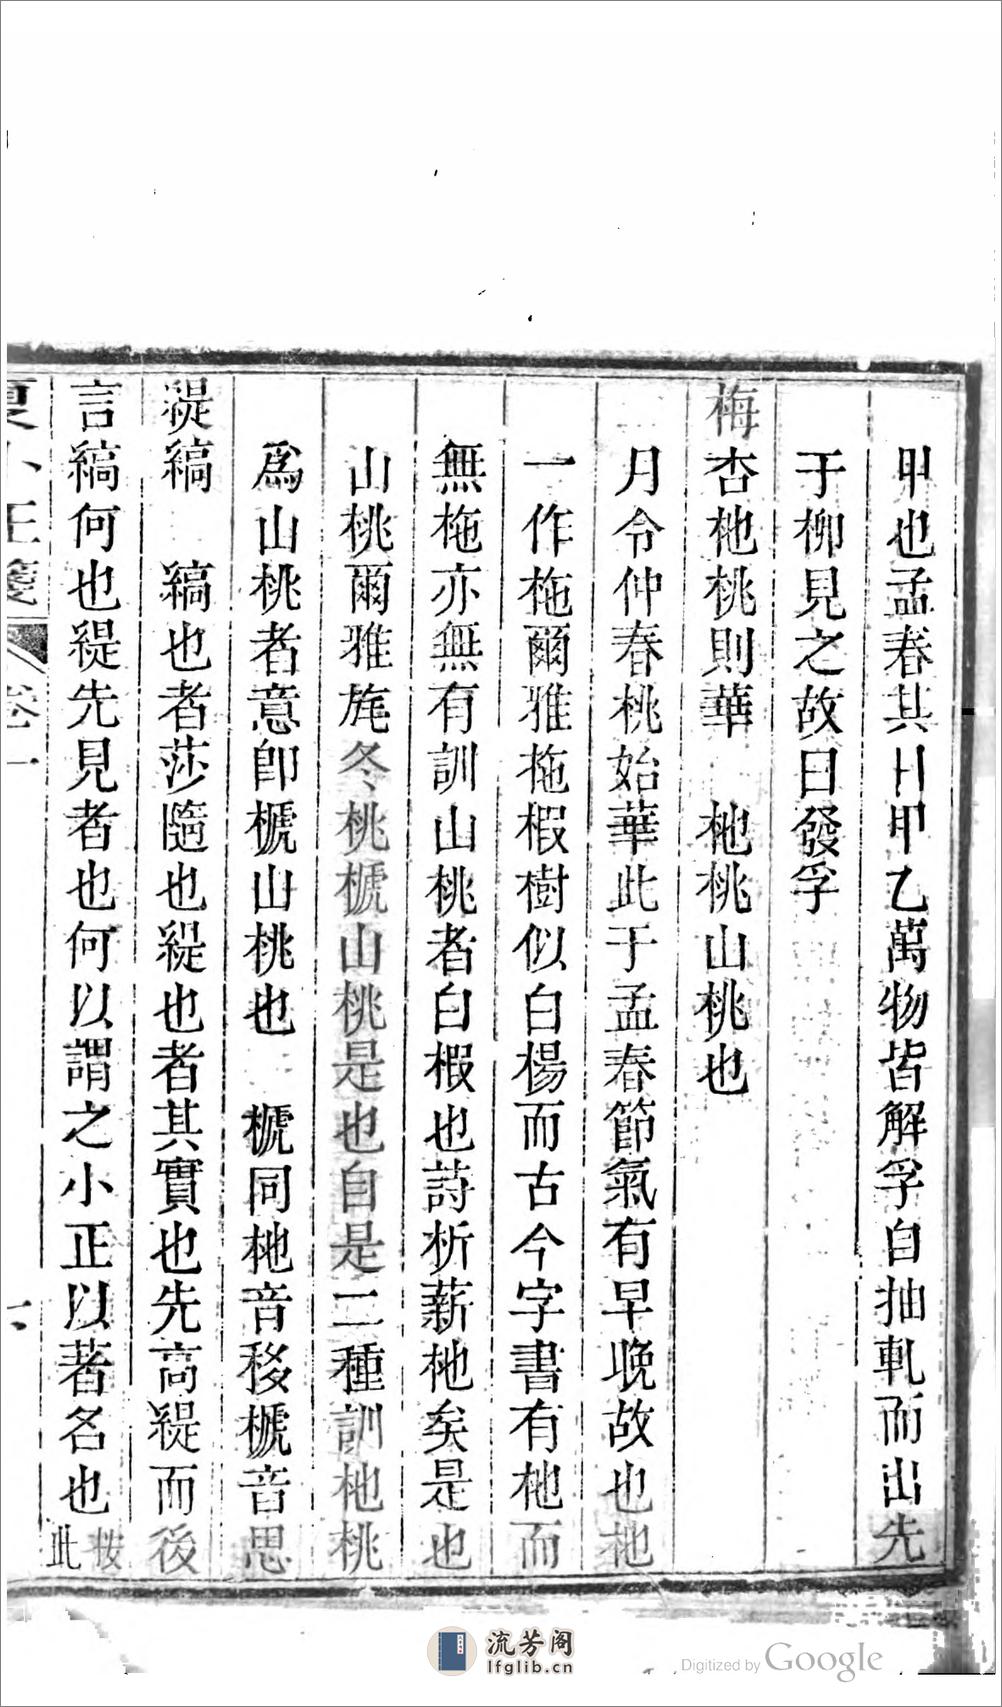 甲也孟春其日甲乙萬物皆解孚自抽軋而出先
于柳見之故曰發孚
梅杏杝桃則華　杝桃山桃也
月令仲春桃始華此于孟春節氣有早晚故也杝
一作柂爾雅柂椵樹似白楊而古今字書有杝而
無柂亦無有訓山桃者白椵也詩析薪杝矣是也
山桃爾雅旄冬桃榹山桃是也自是二種訓杝桃
爲山桃者意卽榹山桃也　榹同杝音移榹音思
緹縞　縞也者莎隨也緹也者其實也先高緹而後
言縞何也緹先見者也何以謂之小正以著名也按此
夏小正箋　卷一
流芳阁
lfglib.cn
Digitized by Google